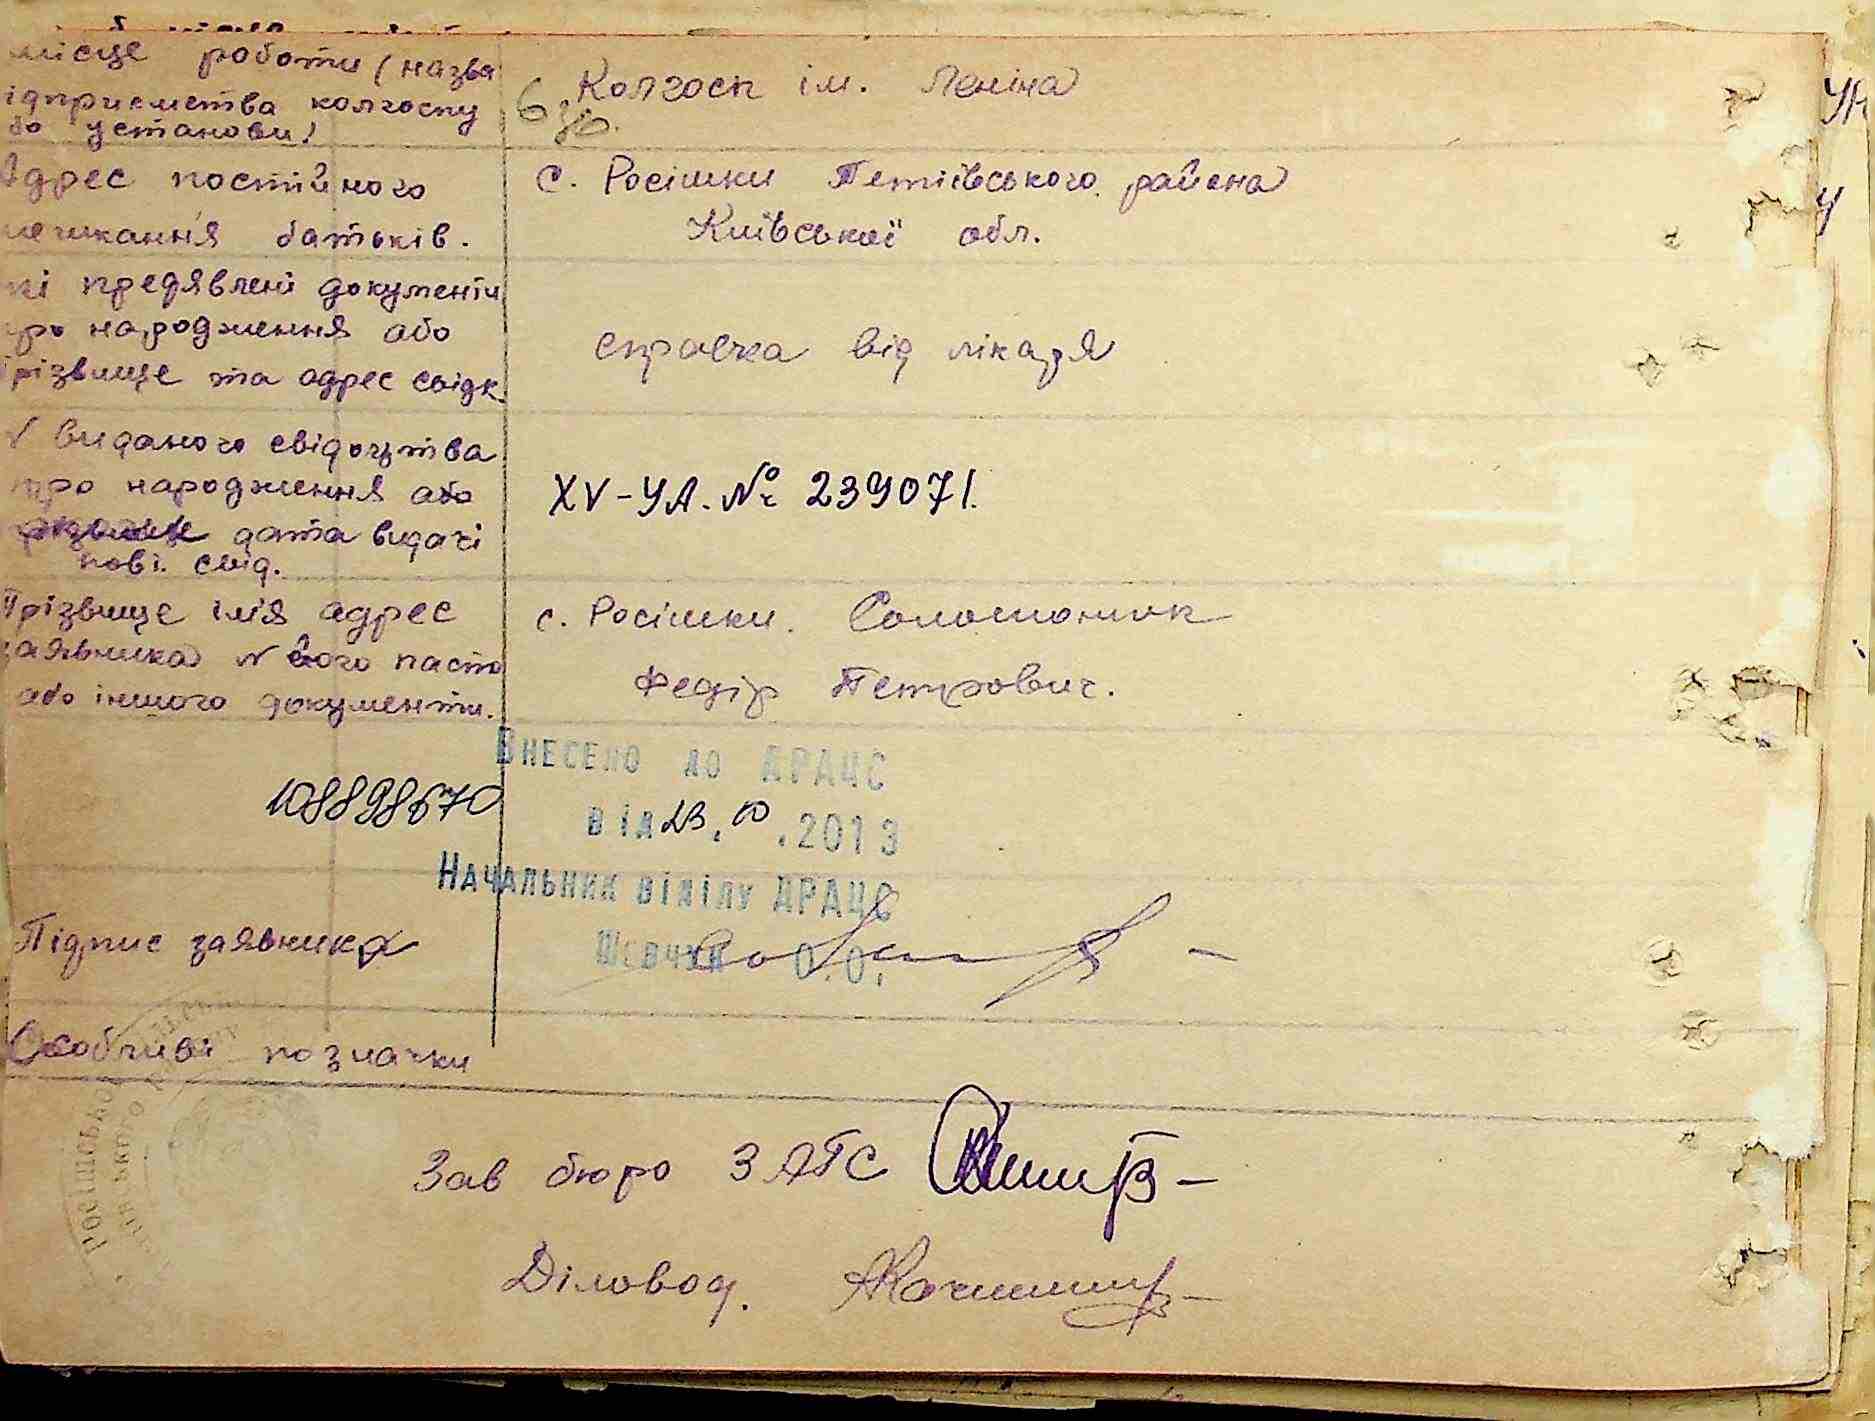 місце роботи (назва
ідприємства колгоспу
бо установи)
Колгосп ім. Леніна
Адрес постійного
мешкання батьків.
с. Росішки Тетіївського района
Київської обл.
кі предявлені документи
про народження або
прізвище та адрес свідк.
справка від лікаря
N виданого свідоцтва
про народження або
дата видачі
повт. свід.
XV-УА. № 239071.
Прізвище імія адрес
заявника N його паспо
або іншого документи.
с. Росішки. Соломонюк
Федір Петрович.
108898670
Внесено до ДРАЦС
від 23. 10 .2013
Начальник відділу ДРАЦС
Шевчук О.О.
Підпис заявника
Особливі позначки
Зав бюро ЗАГС
Діловод.